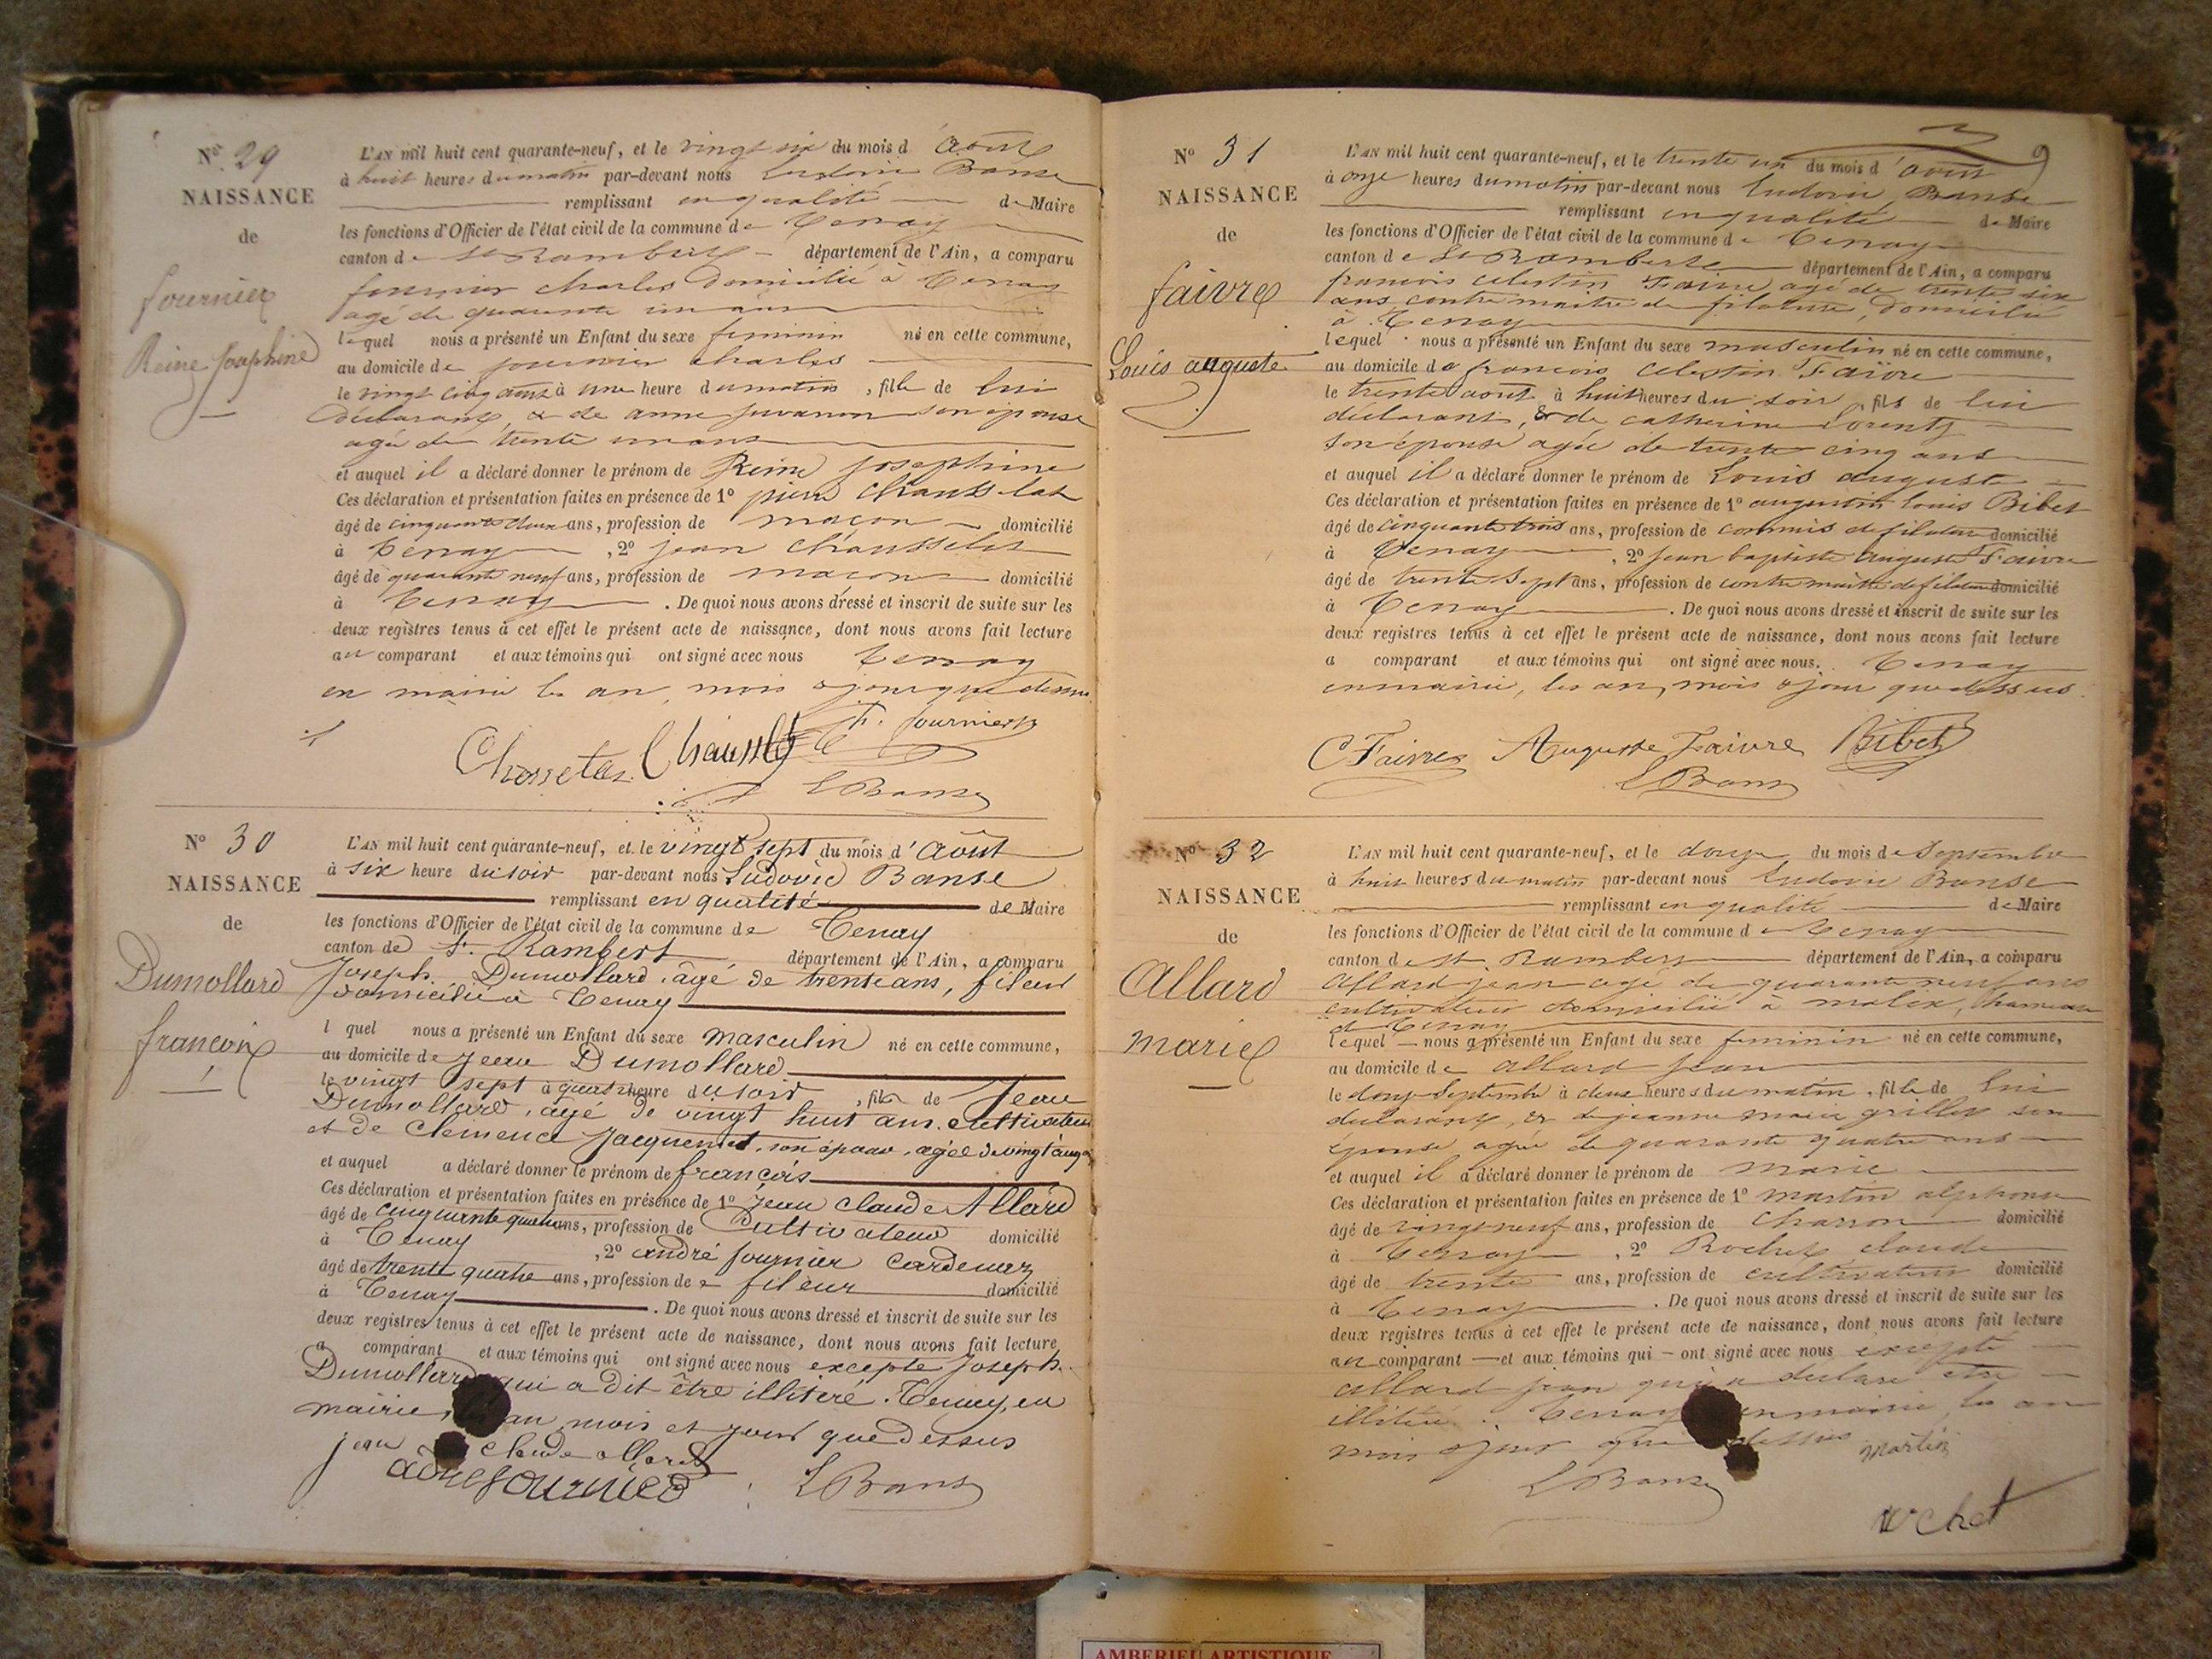 N° 29
NAISSANCE
de
fournier
Reine Josephine
L'AN mil huit cent quarante-neuf, et le vingt six du mois d'août
à huit heures du matin par-devant nous Ludovic Banse
remplissant en qualité de Maire
les fonctions d'Officier de l'état civil de la commune de Tenay
canton de St Rambert département de l'Ain, a comparu
fournier charles domicilié à Tenay
agé de quarante un ans
lequel nous a présenté un Enfant du sexe feminin né en cette commune,
au domicile de fournier charles
le vingt cinq août à une heure du matin, fille de lui
déclarant, & de anne son epouse
agée de trente un ans
et auquel il a déclaré donner le prénom de Reine Josephine
Ces déclaration et présentation faites en présence de 1° pierre
âgé de cinquante deux ans, profession de maçon domicilié
à Tenay, 2° jean chausselet
âgé de quarante neuf ans, profession de maçon domicilié
à Tenay. De quoi nous avons dressé et inscrit de suite sur les
deux registres tenus à cet effet le présent acte de naissance, dont nous avons fait lecture
au comparant et aux témoins qui ont signé avec nous Tenay
en mairie les an, mois & jour que dessus
fournier
LBanse
N° 30
NAISSANCE
de
Dumollard
françois
L'AN mil huit cent quarante-neuf, et le vingt sept du mois d'Août
à six heure du soir par-devant nous Ludovic Banse
remplissant en qualité de Maire
les fonctions d'Officier de l'état civil de la commune de Tenay
canton de St. Rambert département de l'Ain, a comparu
Joseph Dumollard, agé de trente ans, fileur
domicilié à Tenay
l quel nous a présenté un Enfant du sexe masculin né en cette commune,
au domicile de Jean Dumollard
le vingt sept à quatre heure du soir, fils de Jean
Dumollard, agé de vingt huit ans, cultivateur
et de Clemence Jacquemet, son épouse, agée de vingt
et auquel a déclaré donner le prénom de françois
Ces déclaration et présentation faites en présence de 1° Jean Claude Allard
âgé de cinquante quatre ans, profession de Cultivateur domicilié
à Tenay, 2° andré fournier
âgé de trente quatre ans, profession de fileur domicilié
à Tenay. De quoi nous avons dressé et inscrit de suite sur les
deux registres tenus à cet effet le présent acte de naissance, dont nous avons fait lecture
a comparant et aux témoins qui ont signé avec nous excepté Joseph
Dumollard qui a dit être illiteré. Tenay, en
mairie, an, mois et jour que dessus
jean claude allard
fournier LBanse
N° 31
NAISSANCE
de
faivre
Louis auguste
9
L'AN mil huit cent quarante-neuf, et le trente un du mois d'août
à onze heures du matin par-devant nous Ludovic Banse
remplissant en qualité de Maire
les fonctions d'Officier de l'état civil de la commune de Tenay
canton de St Rambert département de l'Ain, a comparu
francois celestin Faivre agé de trente six
ans contre maitre de filature, domicilié
à Tenay
lequel nous a présenté un Enfant du sexe masculin né en cette commune,
au domicile de francois celestin Faivre
le trente août à huit heures du soir, fils de lui
déclarant, & de catherine Lorentz
son épouse agée de trente cinq ans
et auquel il a déclaré donner le prénom de Louis auguste
Ces déclaration et présentation faites en présence de 1° augustin louis Bibet
âgé de cinquante trois ans, profession de commis de filature domicilié
à Tenay, 2° jean baptiste auguste Faivre
âgé de trente sept ans, profession de contre maitre de filature domicilié
à Tenay. De quoi nous avons dressé et inscrit de suite sur les
deux registres tenus à cet effet le présent acte de naissance, dont nous avons fait lecture
a comparant et aux témoins qui ont signé avec nous. Tenay
en mairie, les an, mois & jour que dessus.
CFaivre Auguste Faivre Bibet
LBanse
N° 32
NAISSANCE
de
Allard
marie
L'AN mil huit cent quarante-neuf, et le douze du mois de Septembre
à huit heures du matin par-devant nous Ludovic Banse
remplissant en qualité de Maire
les fonctions d'Officier de l'état civil de la commune de Tenay
canton de St. Rambert département de l'Ain, a comparu
Allard jean agé de quarante neuf ans
cultivateur domicilié à malix, hameau
de Tenay
lequel nous a présenté un Enfant du sexe feminin né en cette commune,
au domicile de allard jean
le douze Septembre à deux heures du matin, fille de lui
déclarant, & de jeanne marie grillet son
épouse agée de quarante quatre ans
et auquel il a déclaré donner le prénom de marie
Ces déclaration et présentation faites en présence de 1° martin alphonse
âgé de vingt neuf ans, profession de charron domicilié
à Tenay, 2° Rochet claude
âgé de trente ans, profession de cultivateur domicilié
à Tenay. De quoi nous avons dressé et inscrit de suite sur les
deux registres tenus à cet effet le présent acte de naissance, dont nous avons fait lecture
au comparant et aux témoins qui ont signé avec nous excepté
allard jean qui a déclaré être
illitéré. Tenay en mairie, les an
mois & jour que dessus Martin
LBanse
rochet
AMBERIEU ARTISTIQUE